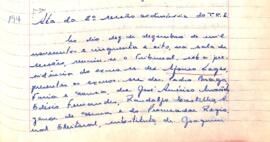 194
Ata da 2ª sessão extraordinária do T.R.E
Ao dia dez de dezembro de mil
novecentos e cinquenta e oito, na sala de
sessões, reuniu-se o Tribunal, sob a pre-
sidência do exmo. sr. des. Afonso Lages,
presentes os exmos. srs. des. Pedro Braga,
Faria e Sousa, drs. José Américo Macedo,
Edésio Fernandes, Randolfo
Júnior de Sousa e do Procurador Regio-
nal Eleitoral, substituto dr. Joaquim